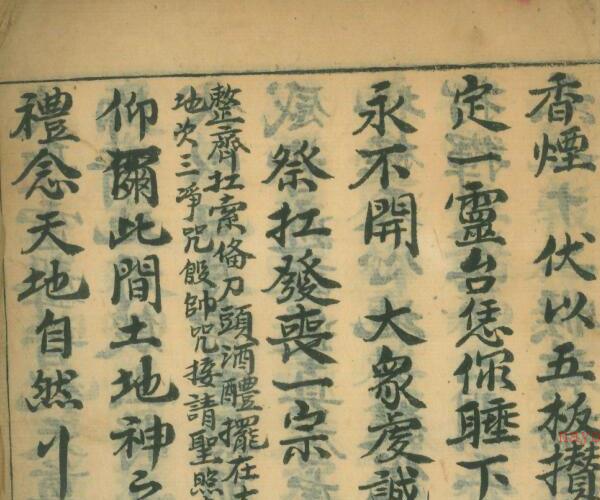 香煙 伏以五板攢
定一靈台恁你睡下
永不開 大眾虔誠
祭扛發喪一宗
整齊扛索俻刀頭酒醴擺在
地次三淨咒殷帥咒接請聖照
仰爾此間土地神
禮念天地自然